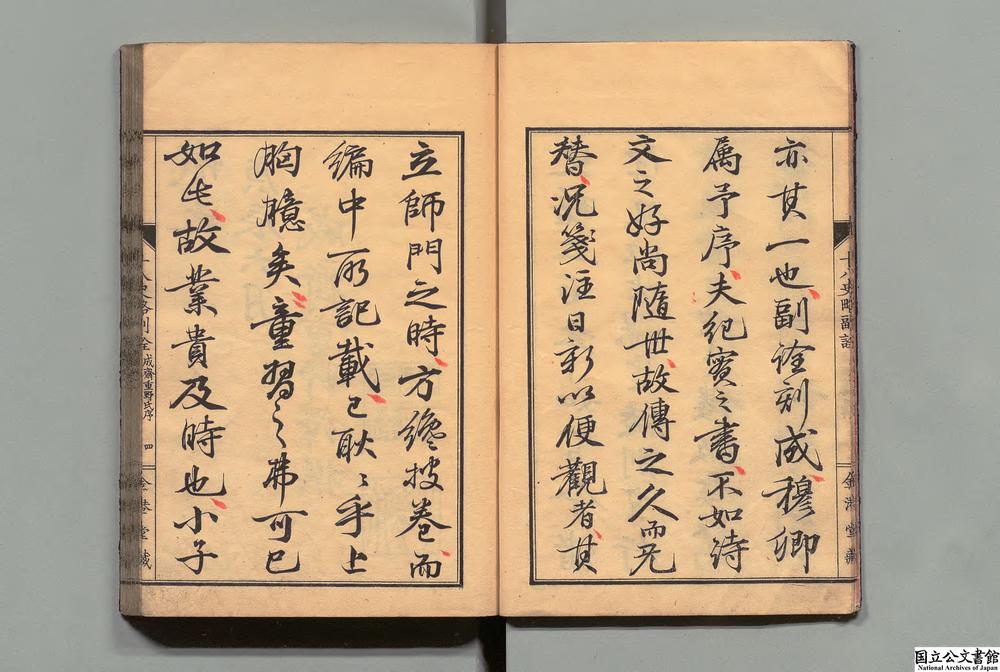 亦其一也、副詮刻成、穆卿
属予序、夫紀實之書、不如詩
文之好尚隨世、故傳之久而無
替、况箋注日新以便觀者、其
立師門之時、方纔披卷、而
編中所記載、已耿々乎上
胸臆矣、童習之弗可已
如此、故業貴及時也、小子
十八史略副詮
金港堂藏
成齋重野氏序
四
金港堂藏
国立公文書館
National Archives of Japan